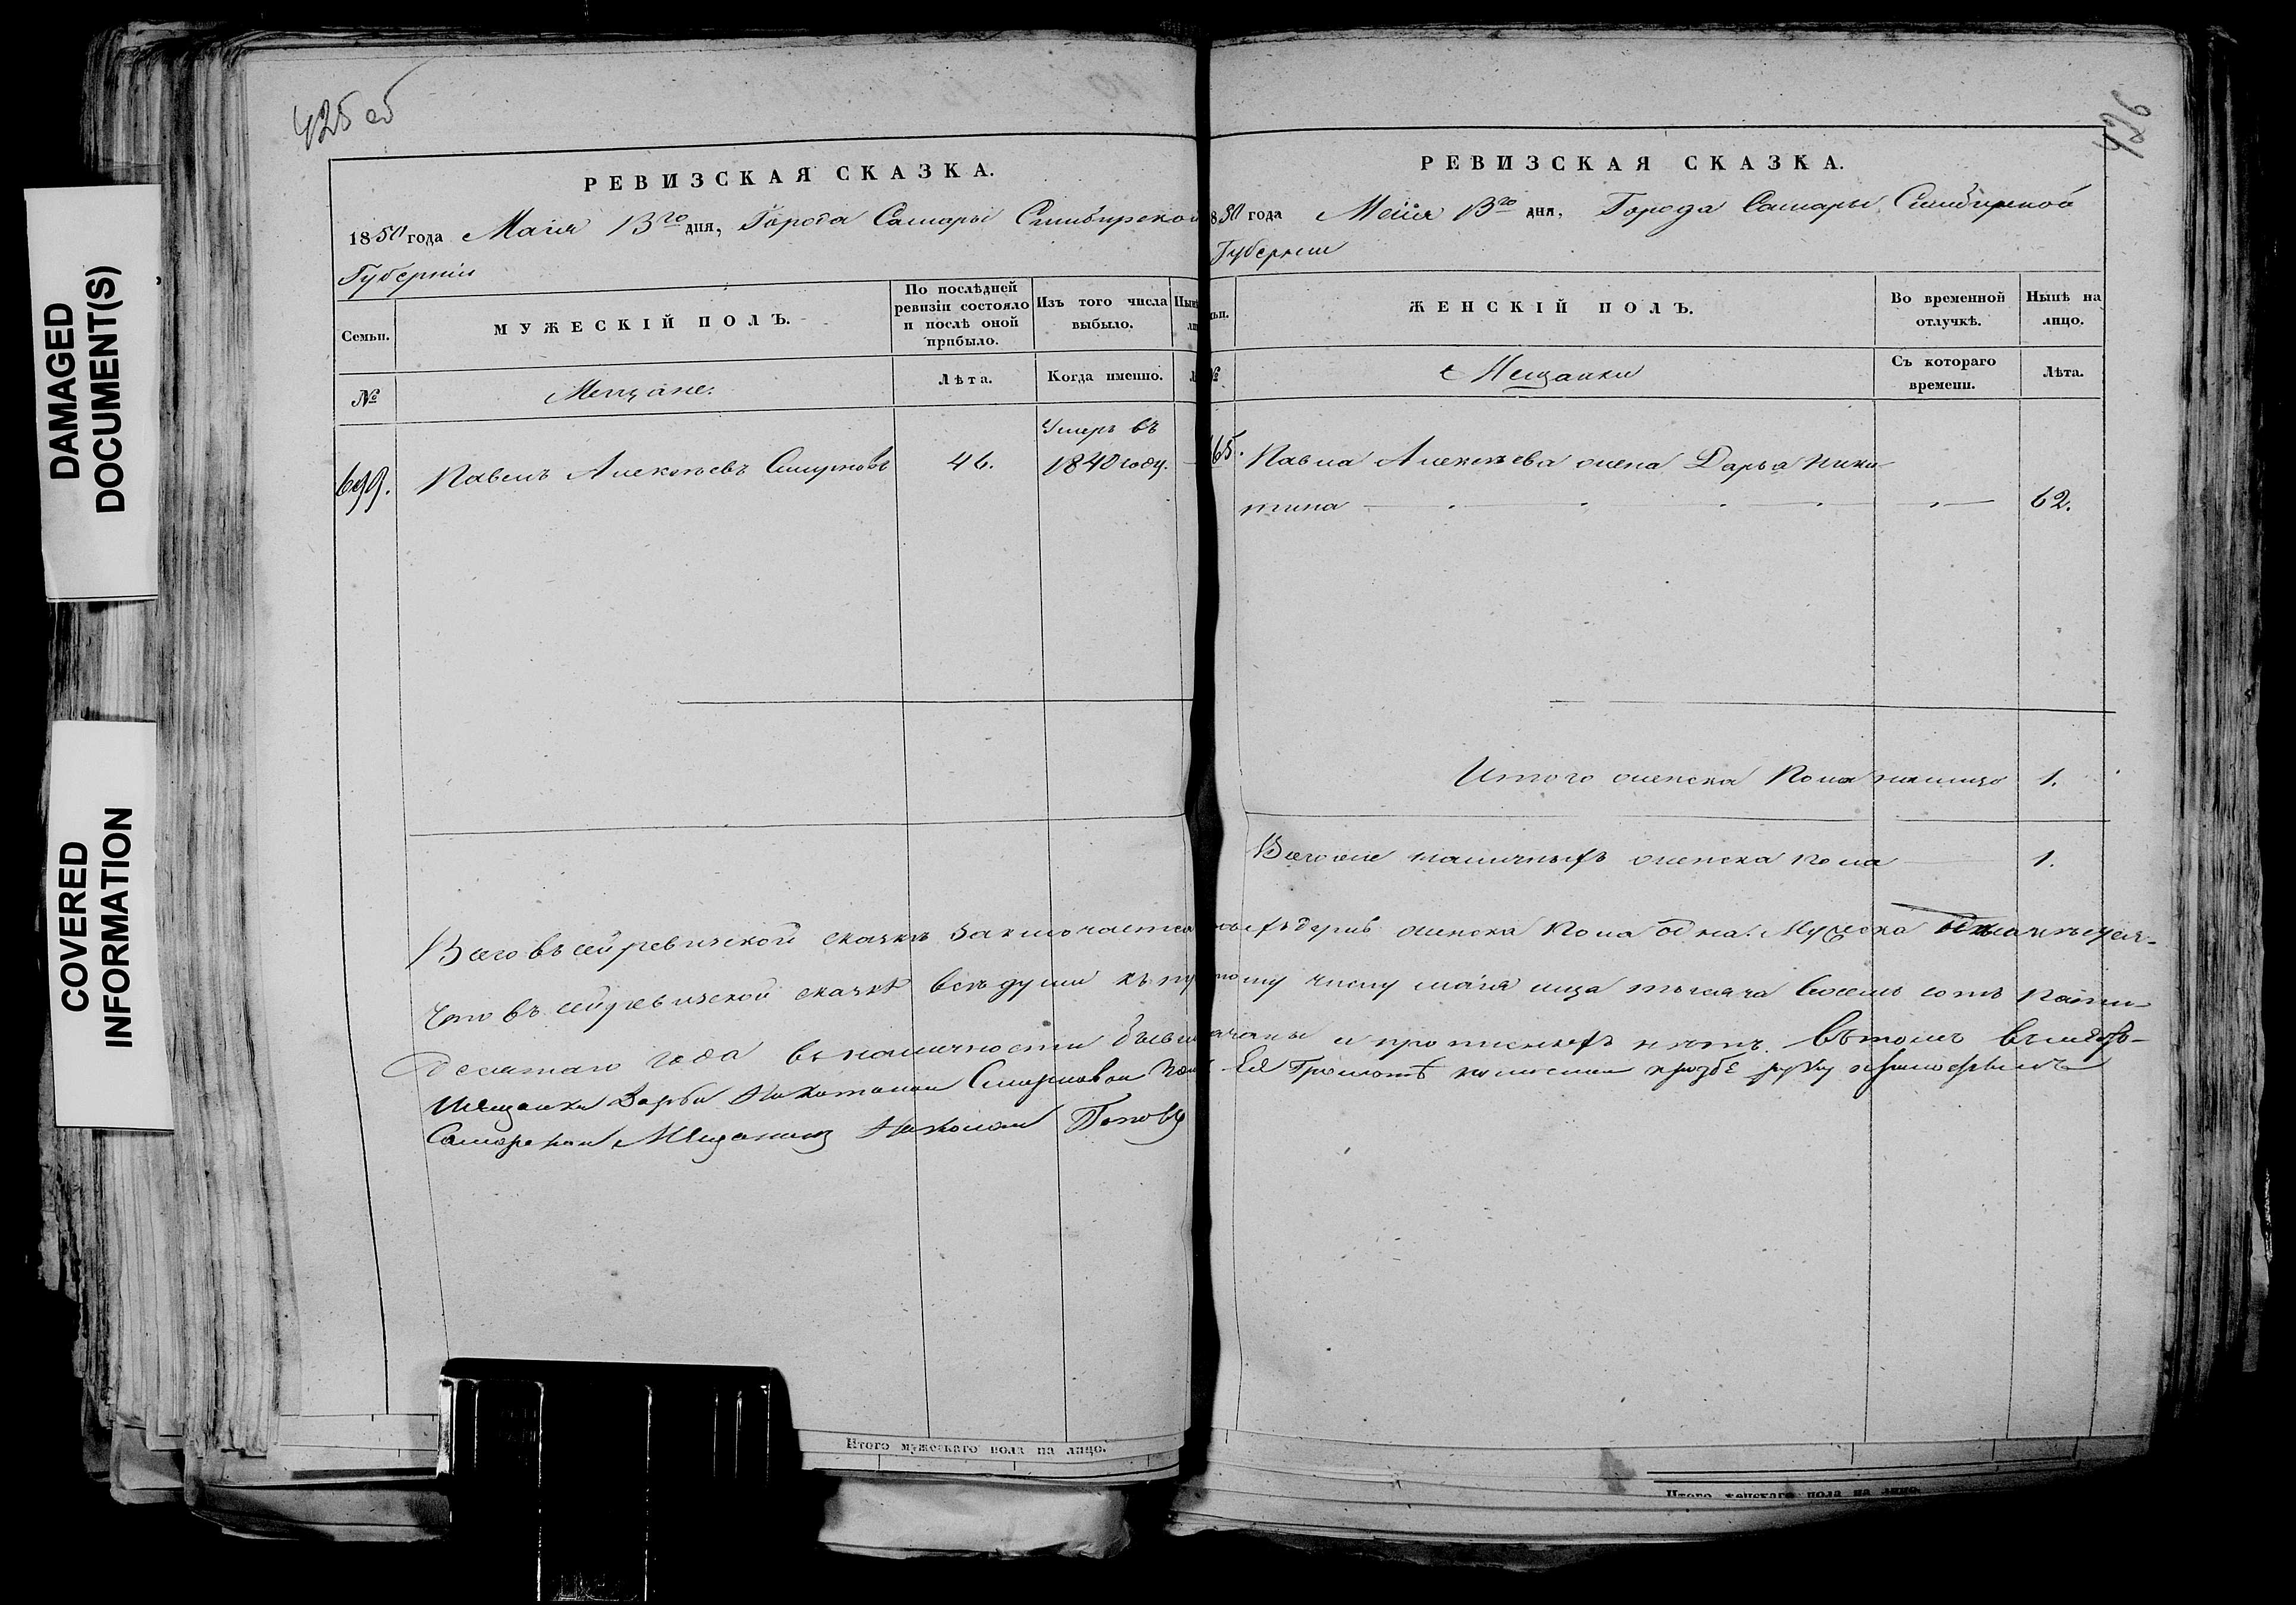 DAMAGED
DOCUMENT(S)
COVERED
INFORMATION
425 об
РЕВИЗСКАЯ СКАЗКА.
1850 года Маія 13го дня, Города Самары Симбирской
Губерніи
Семьи.
МУЖЕСКІЙ ПОЛЪ.
По послѣдней
ревизіи состояло
и послѣ оной
прибыло.
Изъ того числа
выбыло.
№
Мещане.
Лѣта.
Когда именно.
699.
Павелъ Алексѣевъ Смирновъ
46.
Умеръ въ
1840 году.
Всего въ сей ревизской сказкѣ заключается
что въ сей ревизской сказкѣ всѣ души къ
десятаго года въ наличности бывшія
Мещанки Дарьи Никитиной Смирновой
Самарской Мещанинъ Николай Поповъ
Итого мужескаго пола на лицо.
426
РЕВИЗСКАЯ СКАЗКА.
850 года Маія 13го дня, Города Самары Симбирской
Губерніи
ЖЕНСКІЙ ПОЛЪ.
Во временной
отлучкѣ.
Нынѣ на
лицо.
№
Мещанки
Съ котораго
времени.
Лѣта.
Павла Алексѣева жена Дарья Ники-
тина
62.
Итого женска пола на лицо 1.
Всего же наличныхъ женска пола 1.
женска пола одна. Мужеска
числу маія мѣсяца тысяча восемь сотъ пяти-
и прописныхъ нѣтъ. Въ томъ вмѣсто
Ея Грамотѣ прозбѣ руку приложилъ
Итого женскаго пола на лицо.